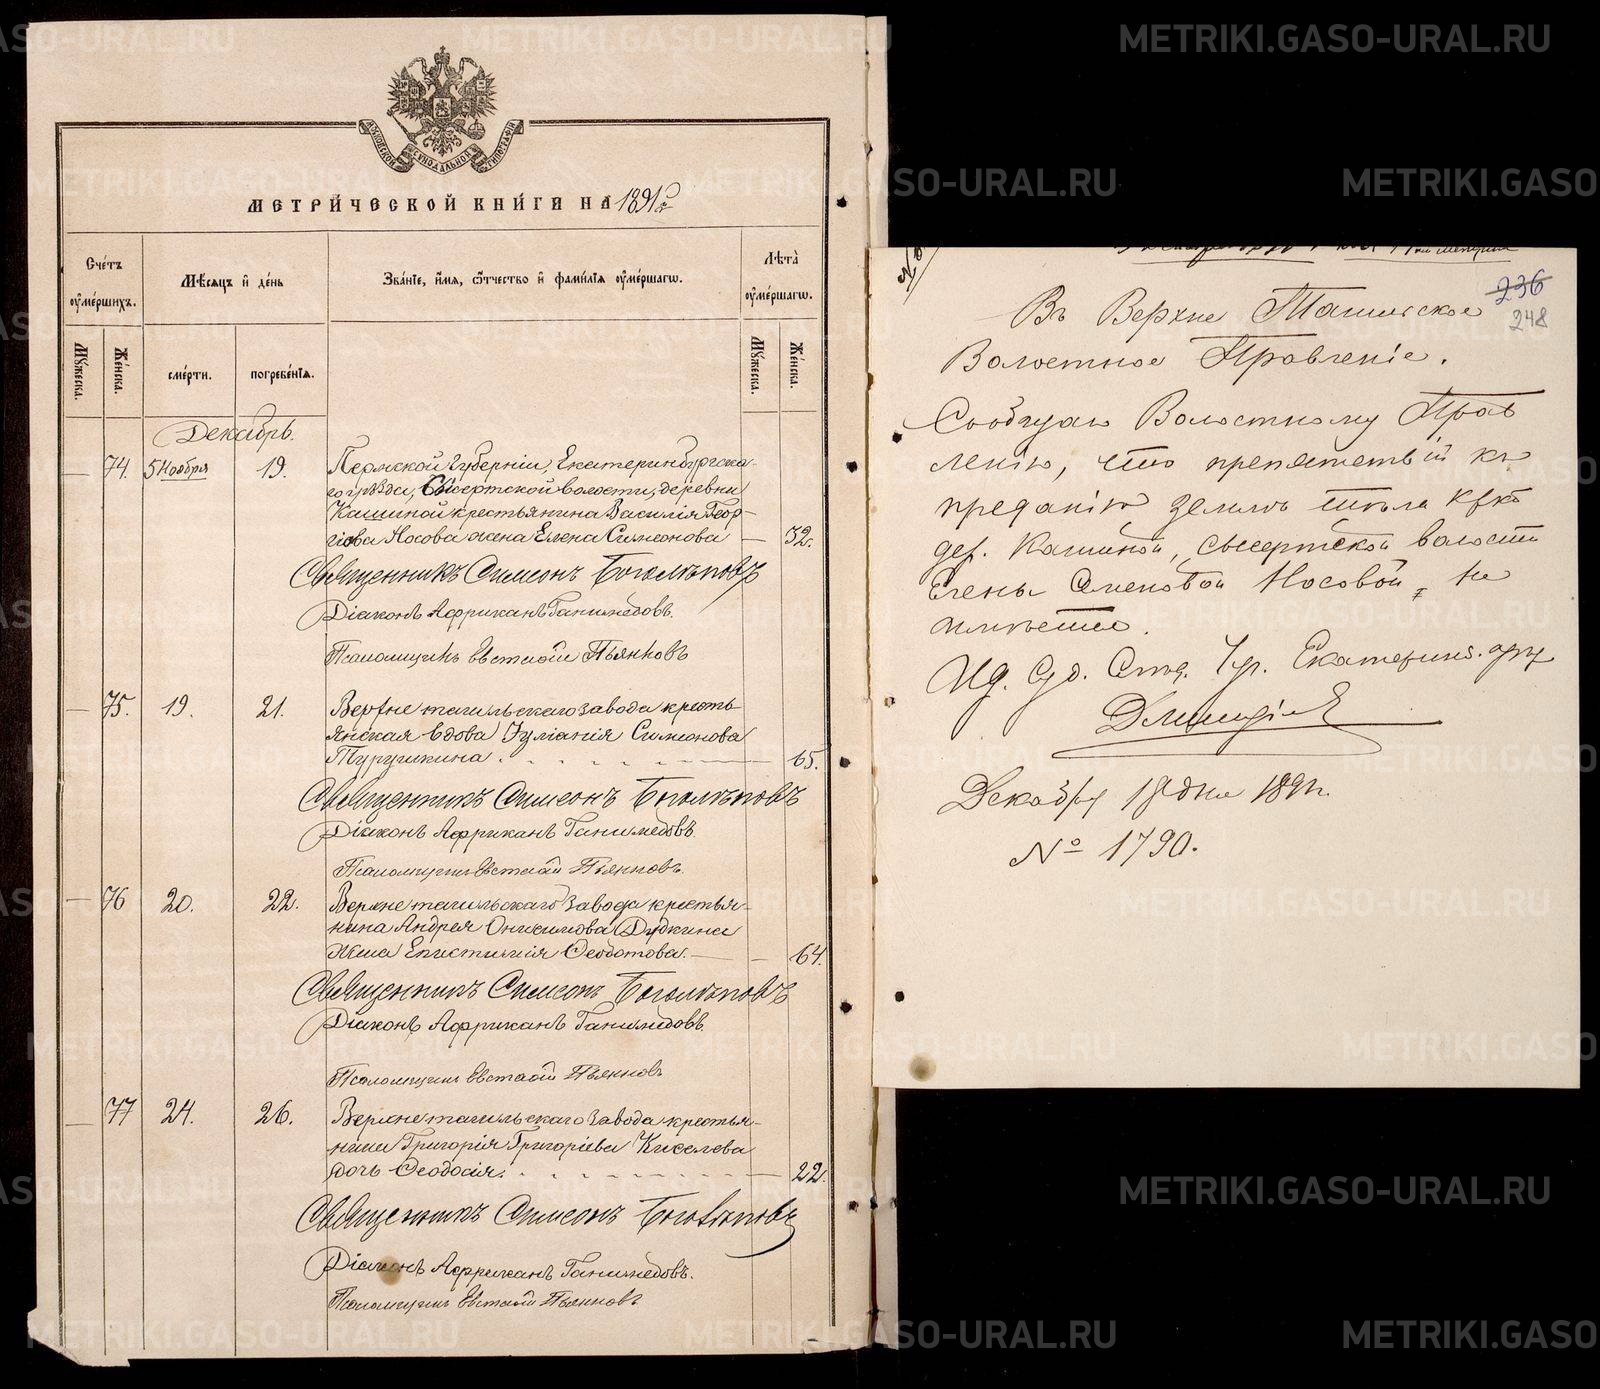 МОСКОВСКОЙ СѴНОДАЛЬНОЙ ТИПОГРАФІИ
МЕТРИ́ЧЕСКОЙ КНИ́ГИ НА 1891 г.
Сче́тъ ᲂу҆ме́ршихъ.
Мѣ́сяцъ и҆ де́нь
Зва́нїе, и҆́мѧ, ѻ҆́тчество и҆ фами́лїѧ ᲂу҆ме́ршагѡ.
Лѣ́та ᲂу҆ме́ршагѡ.
Мꙋ́жеска.
Же́нска.
сме́рти.
погребе́нїѧ.
Мꙋ́жеска.
Же́нска.
Декабрь.
— 74 5 Ноября 19. Пермской губерніи, Екатеринбургска-
го уѣзда, Сысертской волости, деревни
Кашиной крестьянина Василія Геор-
гіева Носова жена Елена Симеонова — 32.
Священникъ Симеонъ Боголѣповъ
Діаконъ Африканъ Ганимедовъ.
Псаломщикъ Евстафій Пьянковъ
— 75. 19. 21. Верхнетагильскаго завода кресть-
янская вдова Іуліанія Симеонова
Туручкина. — 65.
Священникъ Симеонъ Боголѣповъ
Діаконъ Африканъ Ганимедовъ.
Псаломщикъ Евстафій Пьянковъ.
— 76 20. 22. Верхнетагильскаго завода крестья-
нина Андрея Онисимова Дудкина
жена Епистимія Ѳеодотова. — — 64.
Священникъ Симеонъ Боголѣповъ
Діаконъ Африканъ Ганимедовъ.
Псаломщикъ Евстафій Пьянковъ
— 77 24. 26. Верхнетагильскаго завода крестья-
нина Григорія Григоріева Киселева
дочь Ѳеодосія. — 22.
Священникъ Симеонъ Боголѣповъ
Діаконъ Африканъ Ганимедовъ.
Псаломщикъ Евстафій Пьянковъ
236
248
Въ Верхне Тагильское
Волостное Правленіе.
Сообщаю Волостному Прав
ленію, что препятствій къ
преданію землѣ тѣла кр-ки
дер. Кашиной, Сысертской волости
Елены Семеновой Носовой = не
имѣется.
И.д. Суд. Слѣд. 1 уч. Екатеринб. окр.
Декабря 18 дня 1891 г.
№ 1790.
METRIKI.GASO-URAL.RU